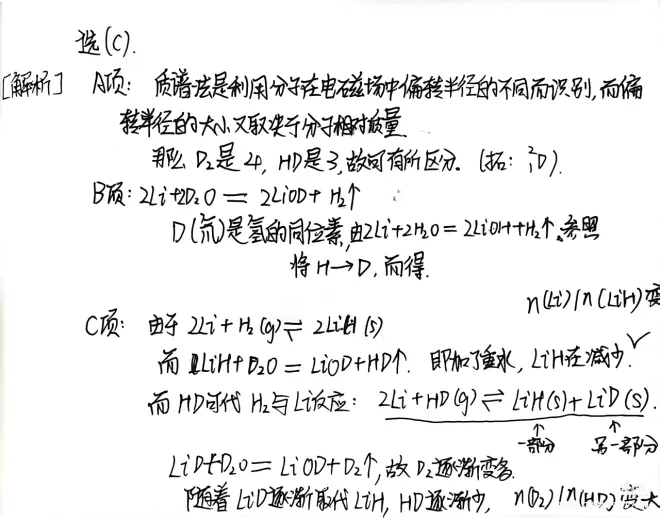 选(C).
[解析] A项: 质谱法是利用分子在电磁场中偏转半径的不同而识别,而偏
转半径的大小又取决于分子相对质量
那么 D₂是4, HD是3,故可有所区分. (拓: ²₁D).
B项: 2Li+2D₂O = 2LiOD + H₂↑
D(氘)是氢的同位素,由2Li+2H₂O = 2LiOH+H₂↑,参照
将 H→D, 而得.
n(Li)/n(LiH)变
C项: 由于 2Li + H₂(g) ⇌ 2LiH(s)
而 LiH+D₂O = LiOD+HD↑. 即加了重水, LiH在减少. ✓
而 HD可代 H₂与Li反应: 2Li + HD(g) ⇌ LiH(s) + LiD(s).
↑ ↑
一部分 另一部分
LiD+D₂O = LiOD+D₂↑, 故 D₂逐渐变多
随着 LiD逐渐取代LiH, HD逐渐少, n(D₂)/n(HD)变大